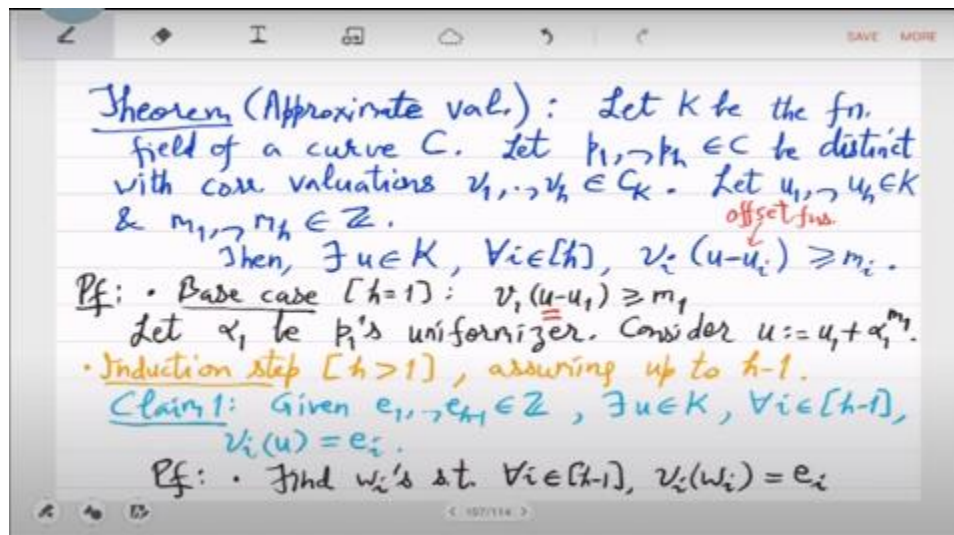 SAVE MORE
Theorem (Approximate val.): Let K be the fn.
field of a curve C. Let p₁,⇁pₕ ∈ C be distinct
with corr valuations v₁,.,vₕ ∈ C_K. Let u₁,⇁uₕ ∈ K
& m₁,⇁mₕ ∈ ℤ.
offset fns.
Then, ∃u∈K, ∀i∈[h], vᵢ(u-uᵢ) ⩾ mᵢ.
Pf: · Base case [h=1]: v₁(u-u₁) ⩾ m₁
Let α₁ be p₁'s uniformizer. Consider u := u₁ + α₁^{m₁}.
· Induction step [h>1], assuming up to h-1.
Claim 1: Given e₁,⇁e_{h-1} ∈ ℤ, ∃u∈K, ∀i∈[h-1],
vᵢ(u) = eᵢ.
Pf: · Find wᵢ's s.t. ∀i∈[h-1], vᵢ(wᵢ) = eᵢ
< 107/114 >